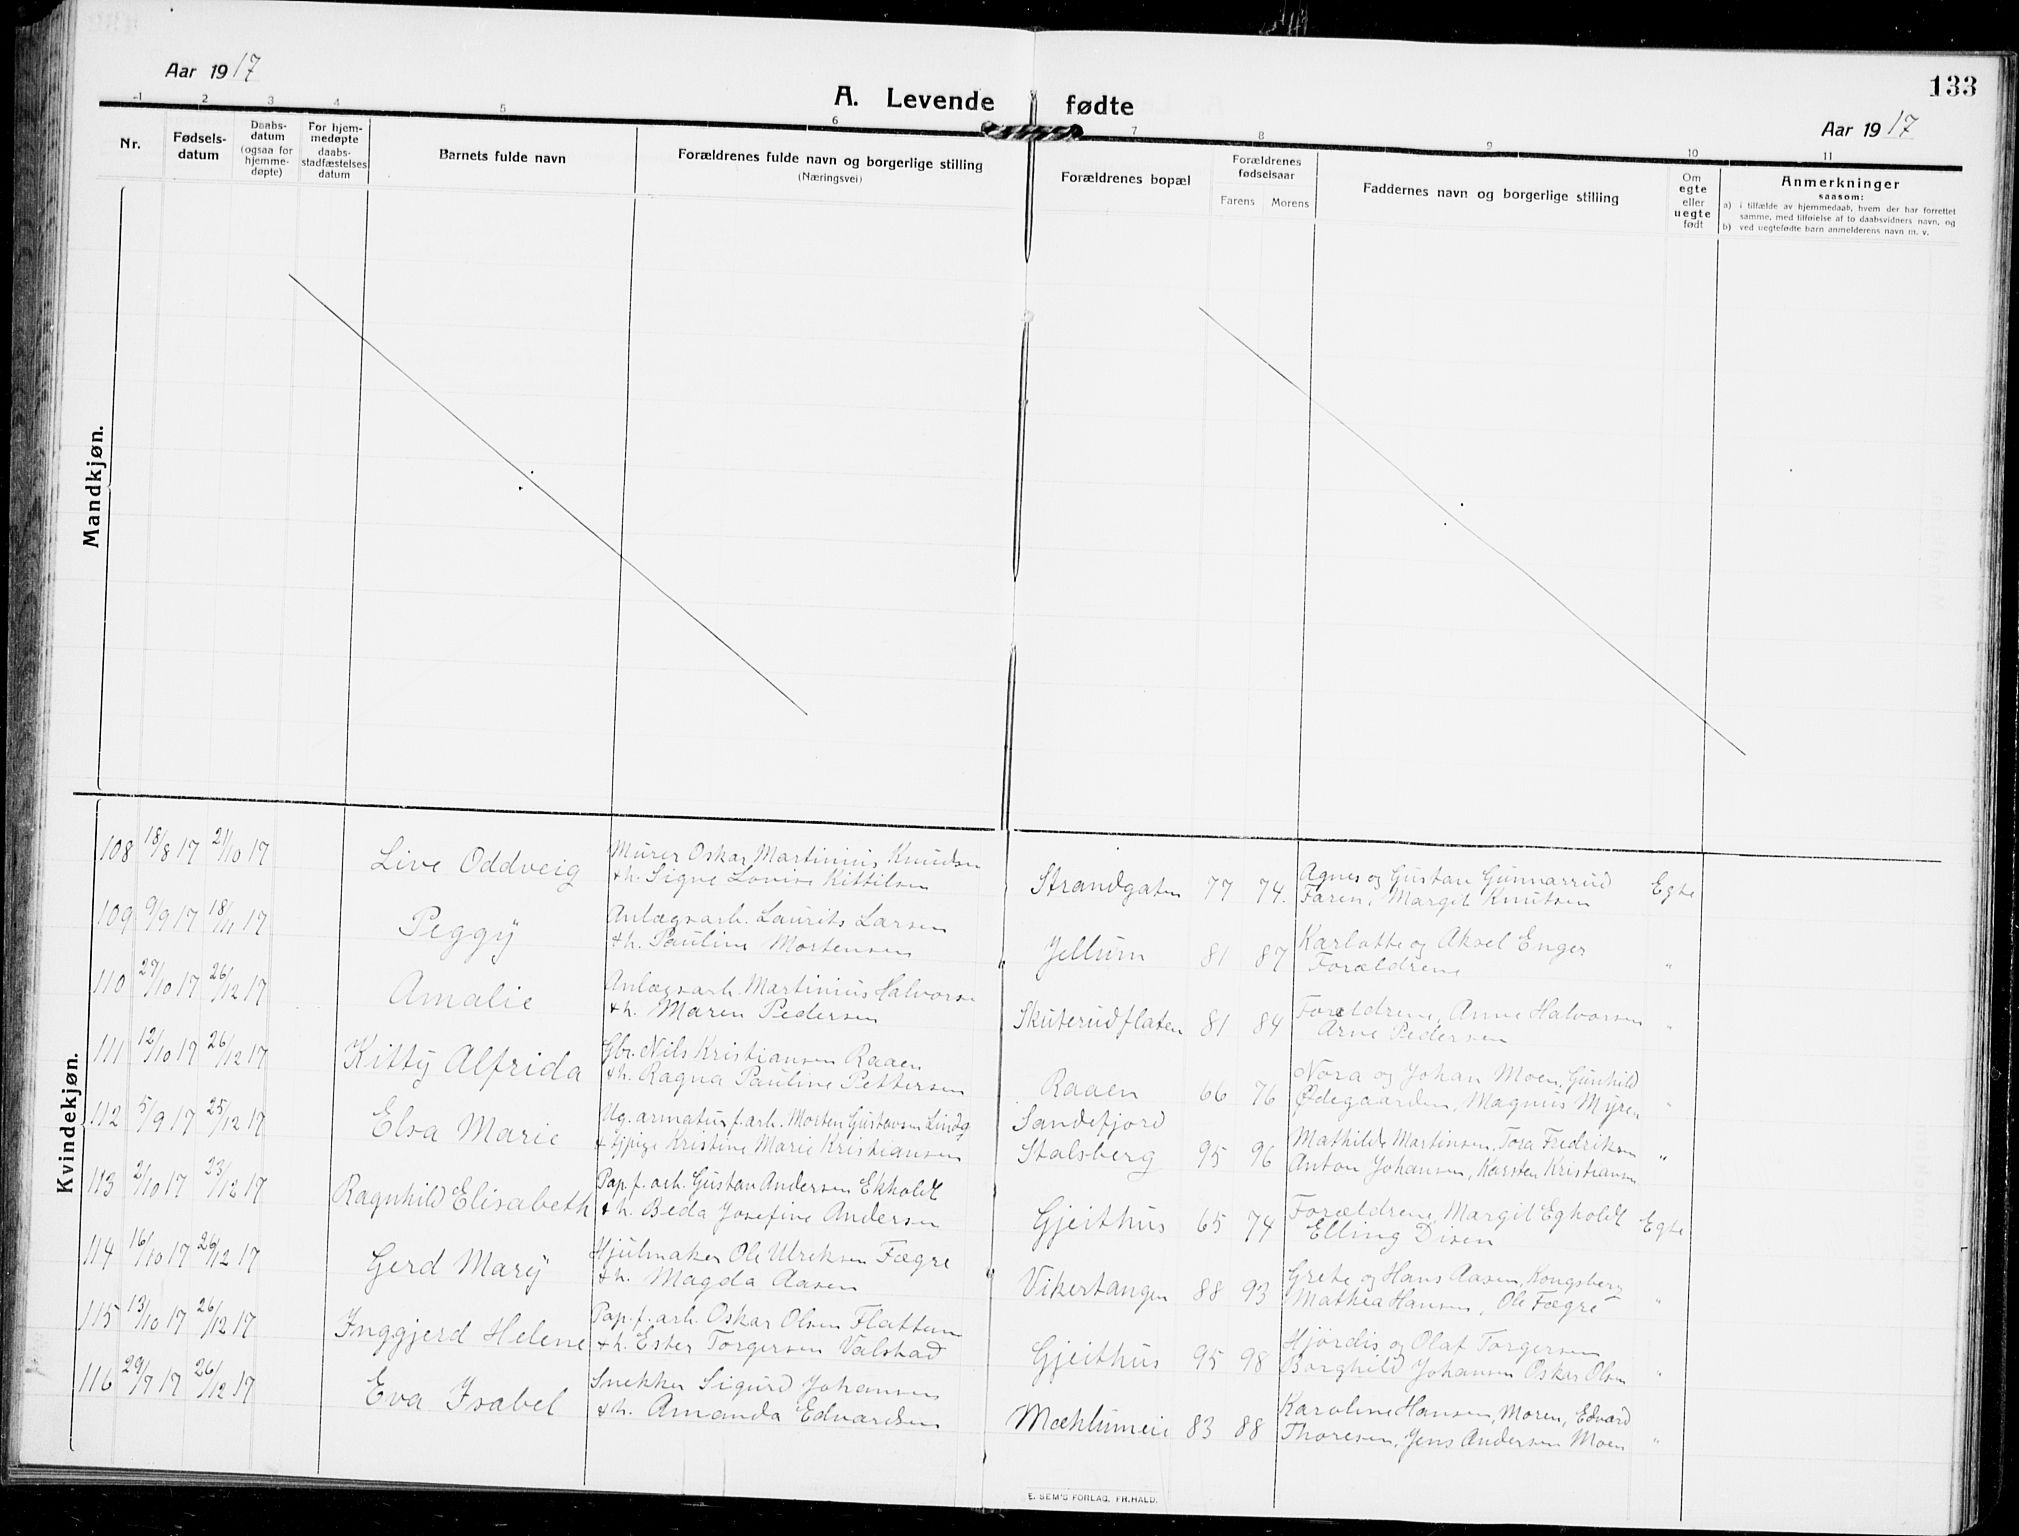 Aar 1917
A. Levende fødte
133
Aar 1917
1 2 3 4 5 6 7 8 9 10 11
Nr.
Fødsels-
datum
Daabs-
datum
(ogsaa for
hjemme-
døpte)
For hjem-
medøpte
daabs-
stadfæstelses
datum
Barnets fulde navn
Forældrenes fulde navn og borgerlige stilling
(Næringsvei)
Forældrenes bopæl
Forældrenes
fødselsaar
Farens Morens
Faddernes navn og borgerlige stilling
Om
egte
eller
uegte
født
Anmerkninger
saasom:
a) i tilfælde av hjemmedaab, hvem der har forrettet
samme, med tilføielse af to daabsvidners navn, og
b) ved uegtefødte barn anmelderens navn m. v.
Mandkjøn.
Kvindekjøn.
108 18/8 17 21/10 17 Live Oddveig
Murer Oskar Martinius Knudsen
+ h. Signe Lovise Kittilsen
Strandgaten 77 74.
Agnes og Gustav Gunnarrud
Faren, Margit Knutsen
Egte
109 9/9 17 18/11 17 Peggy
Anlægsarb. Laurits Larsen
+ h. Pauline Mortensen
Jellum 81 87
Karlotte og Aksel Enger
Forældrene
"
110 29/10 17 26/12 17 Amalie
Anlægsarb. Martinius Halvorsen
+ h. Maren Pedersen
Skuterudflaten 81 84
Forældrene, Anne Halvorsen
Arne Pedersen
"
111 12/10 17 26/12 17 Kitty Alfrida
Gbr. Nils Kristiansen Raaen
+ h. Ragna Pauline Pettersen
Raaen 66 76
Nora og Johan Moen, Gunhild
Ødegaarden, Magnus Myren
"
112 5/9 17 25/12 17 Elsa Marie
Ug. armatur f. arb. Morten Gustavsen Lindg
+ pige Kristine Marie Kristiansen
Sandefjord
Stalsberg 95 96
Mathilde Martinsen, Tora Fredriksen
Anton Johansen, Karsten Kristiansen
"
113 2/10 17 23/12 17 Ragnhild Elisabeth
Pap. f. arb. Gustav Andersen Ekholdt
+ h. Beda Josefine Andersen
Gjeithus 65 74
Forældrene, Margit Egholdt
Elling Disen
Egte
114 16/10 17 26/12 17 Gerd Mary
Hjulmaker Ole Ulriksen Fægre
+ h. Magda Aasen
Vikertangen 88 93
Grete og Hans Aasen, Kongsberg
Mathea Hansen, Ole Fægre
"
115 13/10 17 26/12 17 Inggjerd Helene
Pap. f. arb. Oskar Olsen Flattum
+ h. Ester Torgersen Valstad
Gjeithus 95 98
Hjørdis og Olaf Torgersen
Borghild Johansen Oskar Olsen
"
116 29/7 17 26/12 17 Eva Isabel
Snekker Sigurd Johansen
+ h. Amanda Edvardsen
Mæhlumeie 83 88
Karoline Hansen, Moren, Edvard
Thoresen, Jens Andersen Moen
"
E. SEM'S FORLAG, FR.HALD.